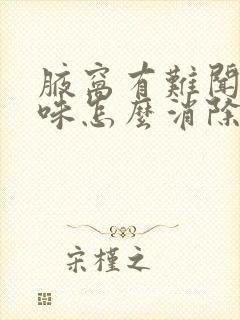 腋窩有難聞
味怎麼消除
宋槿之